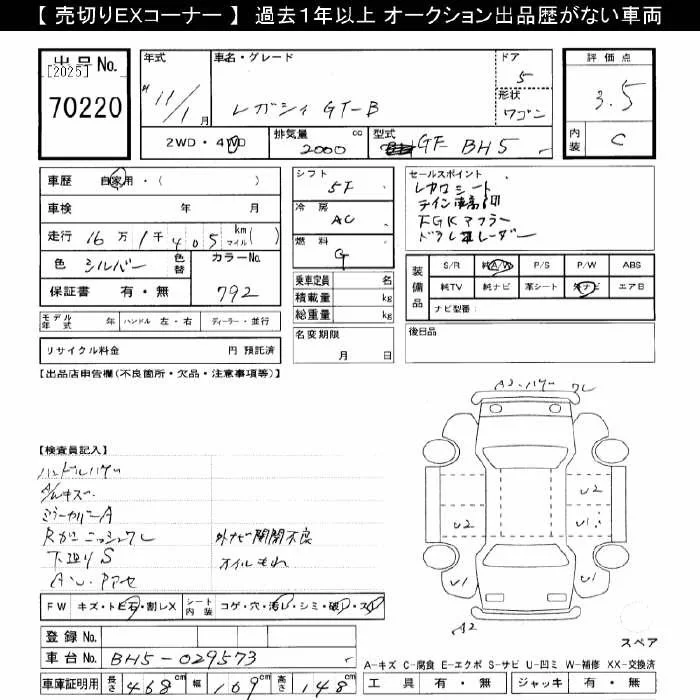 【 売切りEXコーナー 】 過去1年以上 オークション出品歴がない車両
出品No.
[2025]
70220
年式
11/1月
車名・グレード
レガシィ GT-B
ドア
5
形状
ワゴン
評価点
3.5
内装
C
2WD・4WD
排気量
2000 cc
型式
GF BH5
車歴 自家用・( )
車検 年 月
走行 16万1千405 km マイル( )
色 シルバー 色替
カラーNo.
792
保証書 有・無
モデル年式 年 ハンドル 左・右 ディーラー・並行
リサイクル料金 円 預託済
シフト
5F
冷房
AC
燃料
G
乗車定員 名
積載量 kg
総重量 kg
名変期限
月 日
セールスポイント
レカロシート
テイン車高調
FGKマフラー
ドラレコ レーダー
装備品
S/R 純A/W P/S P/W ABS
純TV 純ナビ 革シート 外ナビ エアB
ナビ型番:
後日品
【出品店申告欄(不良箇所・欠品・注意事項等)】
【検査員記入】
ハンドルハゲ
A/Wキズ
ミラーカバーA
下廻りS
外ナビ開閉不良
オイルもれ
FW キズ・トビ石・割レX
シート内装 コゲ・穴・汚レ・シミ・破レ・スレ
登録No.
車台No. BH5-029573
車庫証明用 長さ 468cm 幅 169cm 高さ 148cm
U2
U2
U2
U1
U1
U1
A2
スペア
A-キズ C-腐食 E-エクボ S-サビ U-凹ミ W-補修 XX-交換済
工具 有・無 ジャッキ 有・無